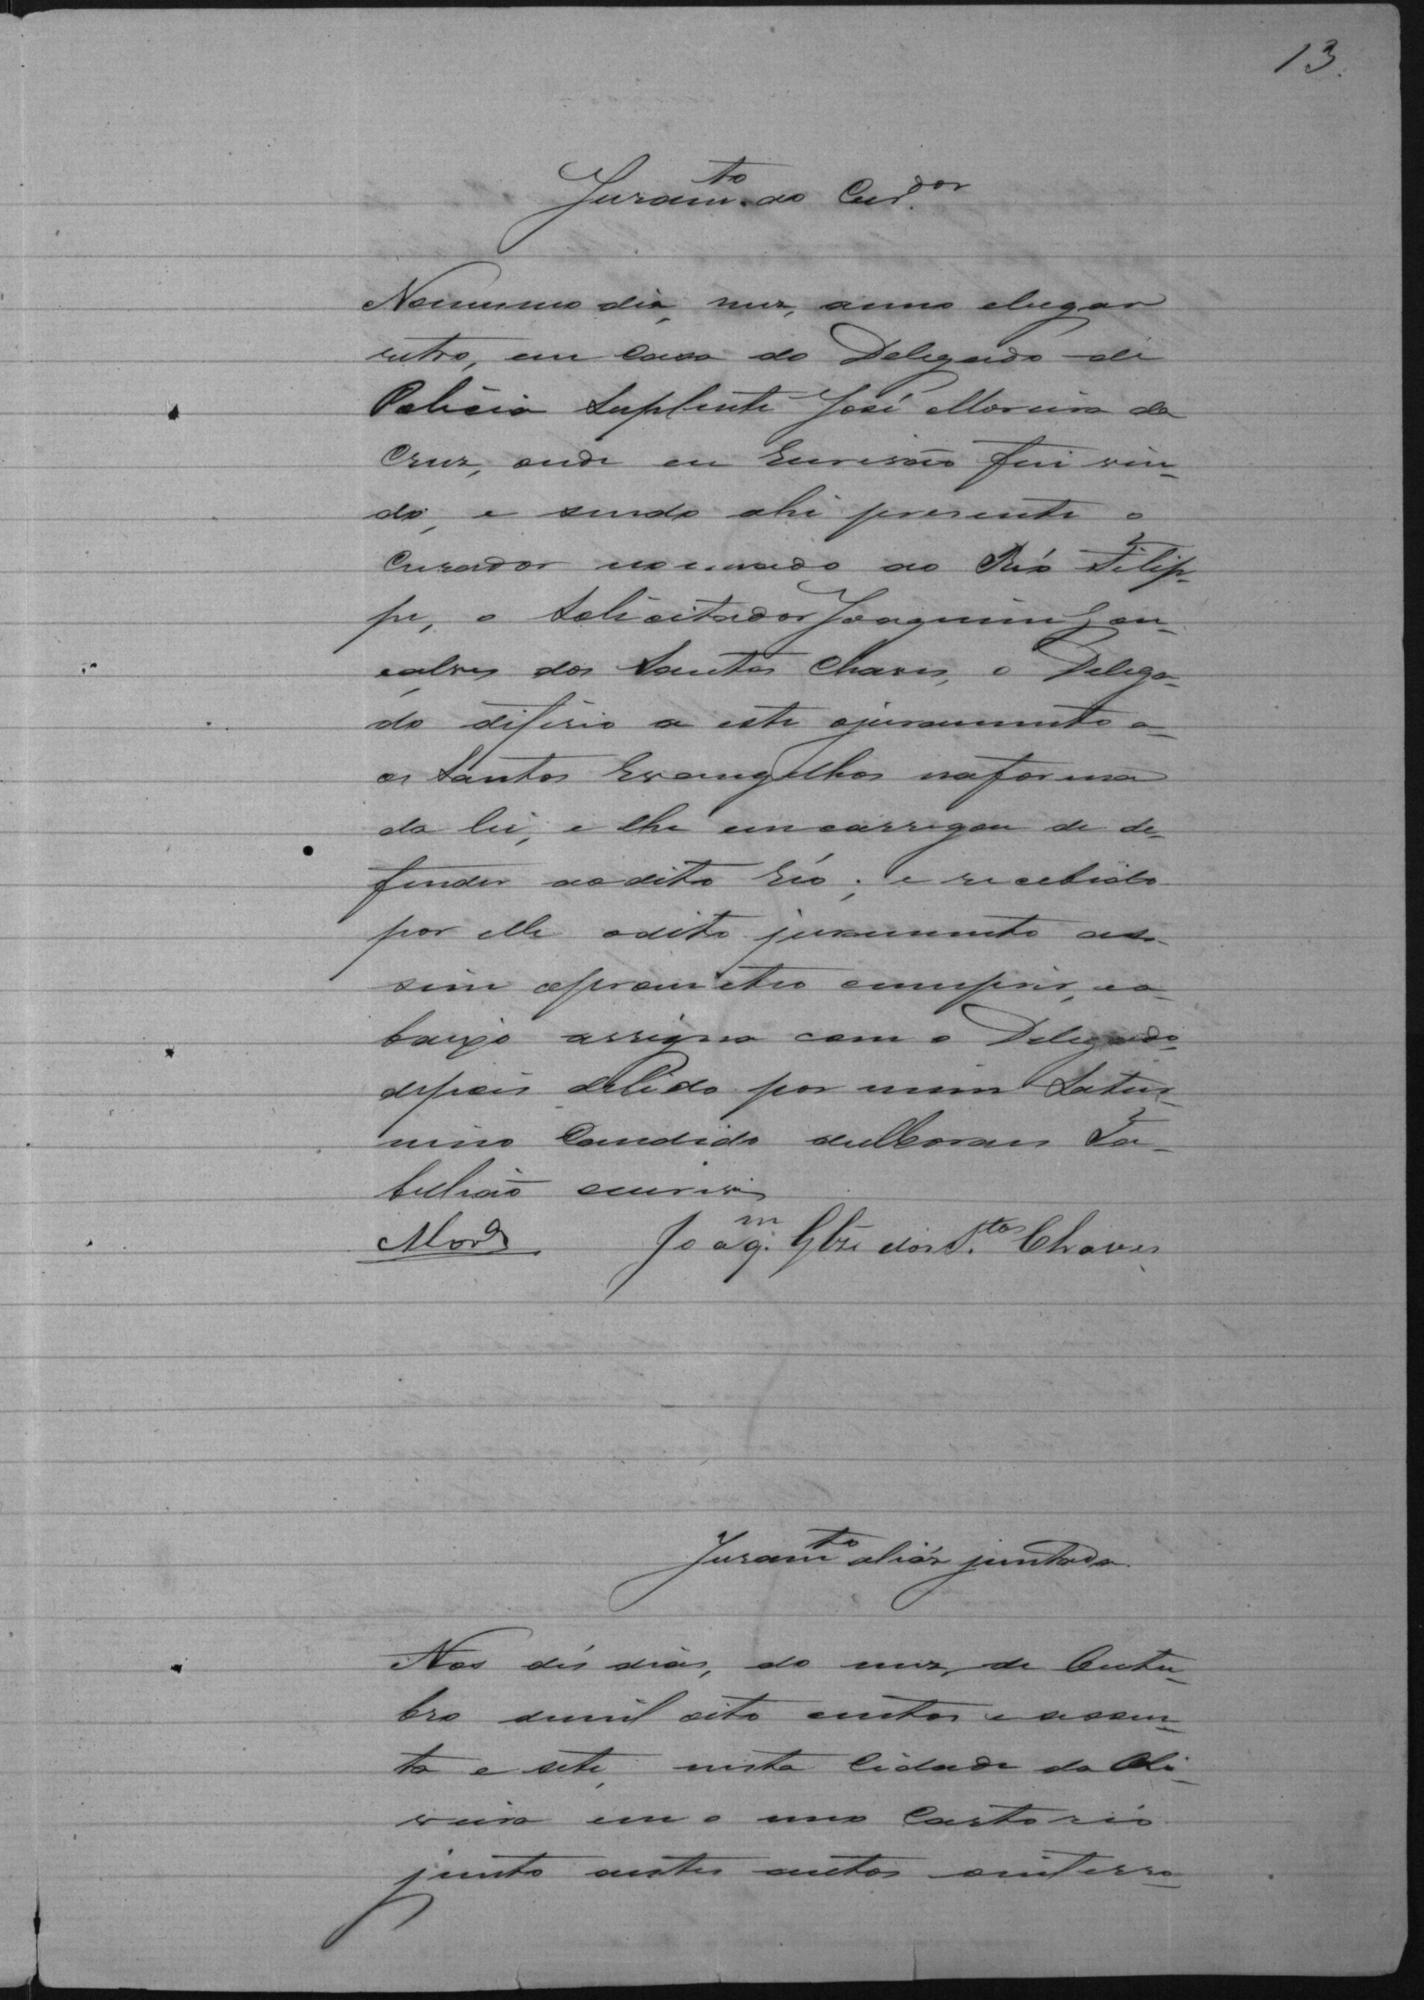 13.
Juram.to do Cur.dor
Nomesmo dia, mez, anno elugar
retro, em Casa do Delegado de
Policia Suplente José Moreira da
Cruz, onde eu Escrivão fui vin-
do, e sendo ahi presente o
Curador nomeado ao Réo Filip-
pe, o Solicitador Joaquim Gon-
calves dos Santos Chaves, o Delega-
do diferio a este ojuramento a-
os Santos Evangelhos naforma
da lei, e lhe encarregou de de-
fender aodito Réo; e recebido
por elle odito juramento as-
sim oprometeo cumprir, ea-
baixo assigna com o Delegado
depois delido por mim Satur-
nino Candido
belião escrivi
Joaq.m Glz dos S.tos Chaves
Juramto aliás juntada.
Aos dés dias, do mez de Outu-
bro demil oito centos e sessen-
ta e sete, nesta Cidade da Oli-
veira em o meo Cartorio
junto aestes autos ointerro-